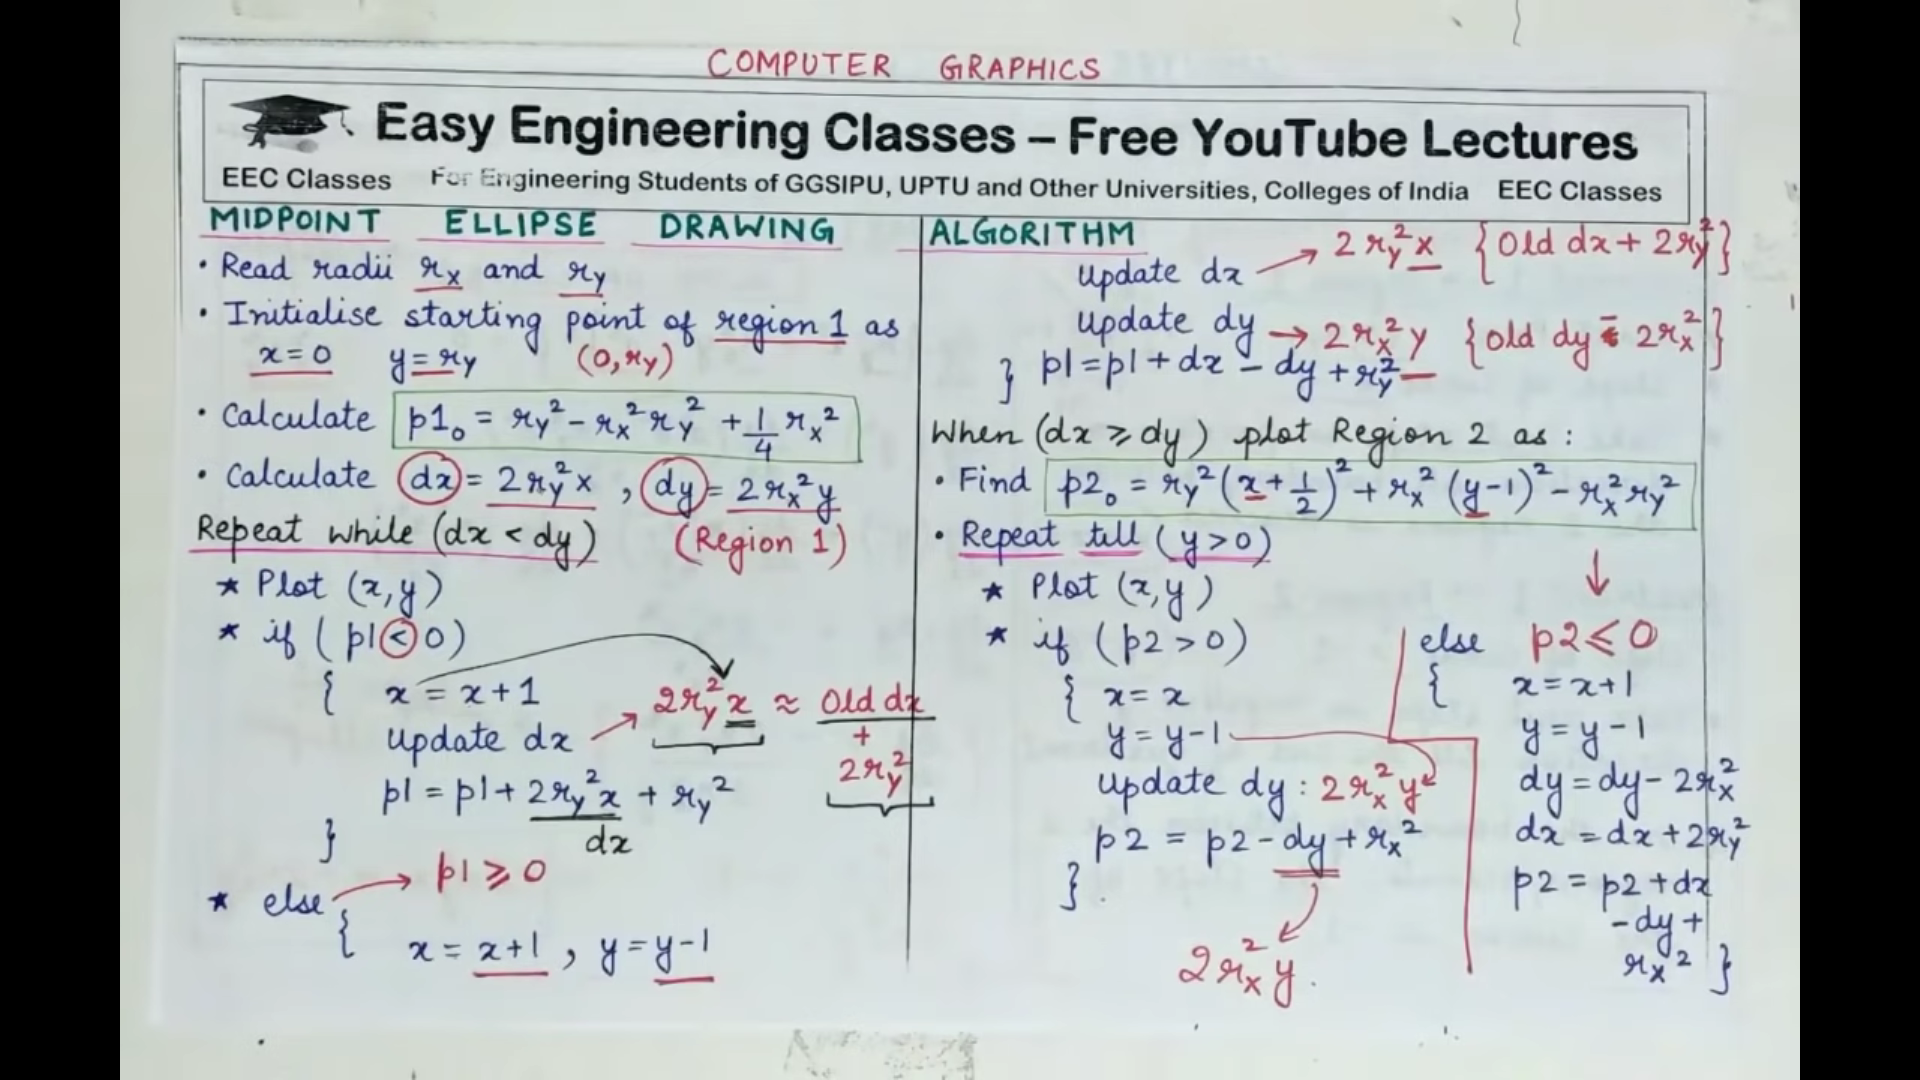 COMPUTER GRAPHICS
Easy Engineering Classes – Free YouTube Lectures
EEC Classes For Engineering Students of GGSIPU, UPTU and Other Universities, Colleges of India EEC Classes
MIDPOINT ELLIPSE DRAWING ALGORITHM
• Read radii rx and ry
• Initialise starting point of region 1 as
x=0 y=ry (0,ry)
• Calculate p1₀ = ry² - rx²ry² + 1/4 rx²
• Calculate dx = 2ry²x , dy = 2rx²y
Repeat while (dx < dy) (Region 1)
* Plot (x,y)
* if ( p1 < 0)
{ x = x+1
Update dx → 2ry²x ≈ Old dx + 2ry²
p1 = p1 + 2ry²x + ry²
dx
}
* else → p1 ≥ 0
{ x = x+1 , y = y-1
Update dx → 2ry²x {Old dx + 2ry²}
Update dy → 2rx²y {Old dy - 2rx²}
} p1 = p1 + dx - dy + ry²
When (dx ≥ dy) plot Region 2 as :
• Find p2₀ = ry²(x+1/2)² + rx²(y-1)² - rx²ry²
• Repeat till (y>0)
* Plot (x,y)
* if (p2 > 0)
{ x = x
y = y-1
Update dy : 2rx²y
p2 = p2 - dy + rx²
}.
2rx²y.
else p2 ≤ 0
{ x = x+1
y = y-1
dy = dy - 2rx²
dx = dx + 2ry²
p2 = p2 + dx
- dy +
rx² }